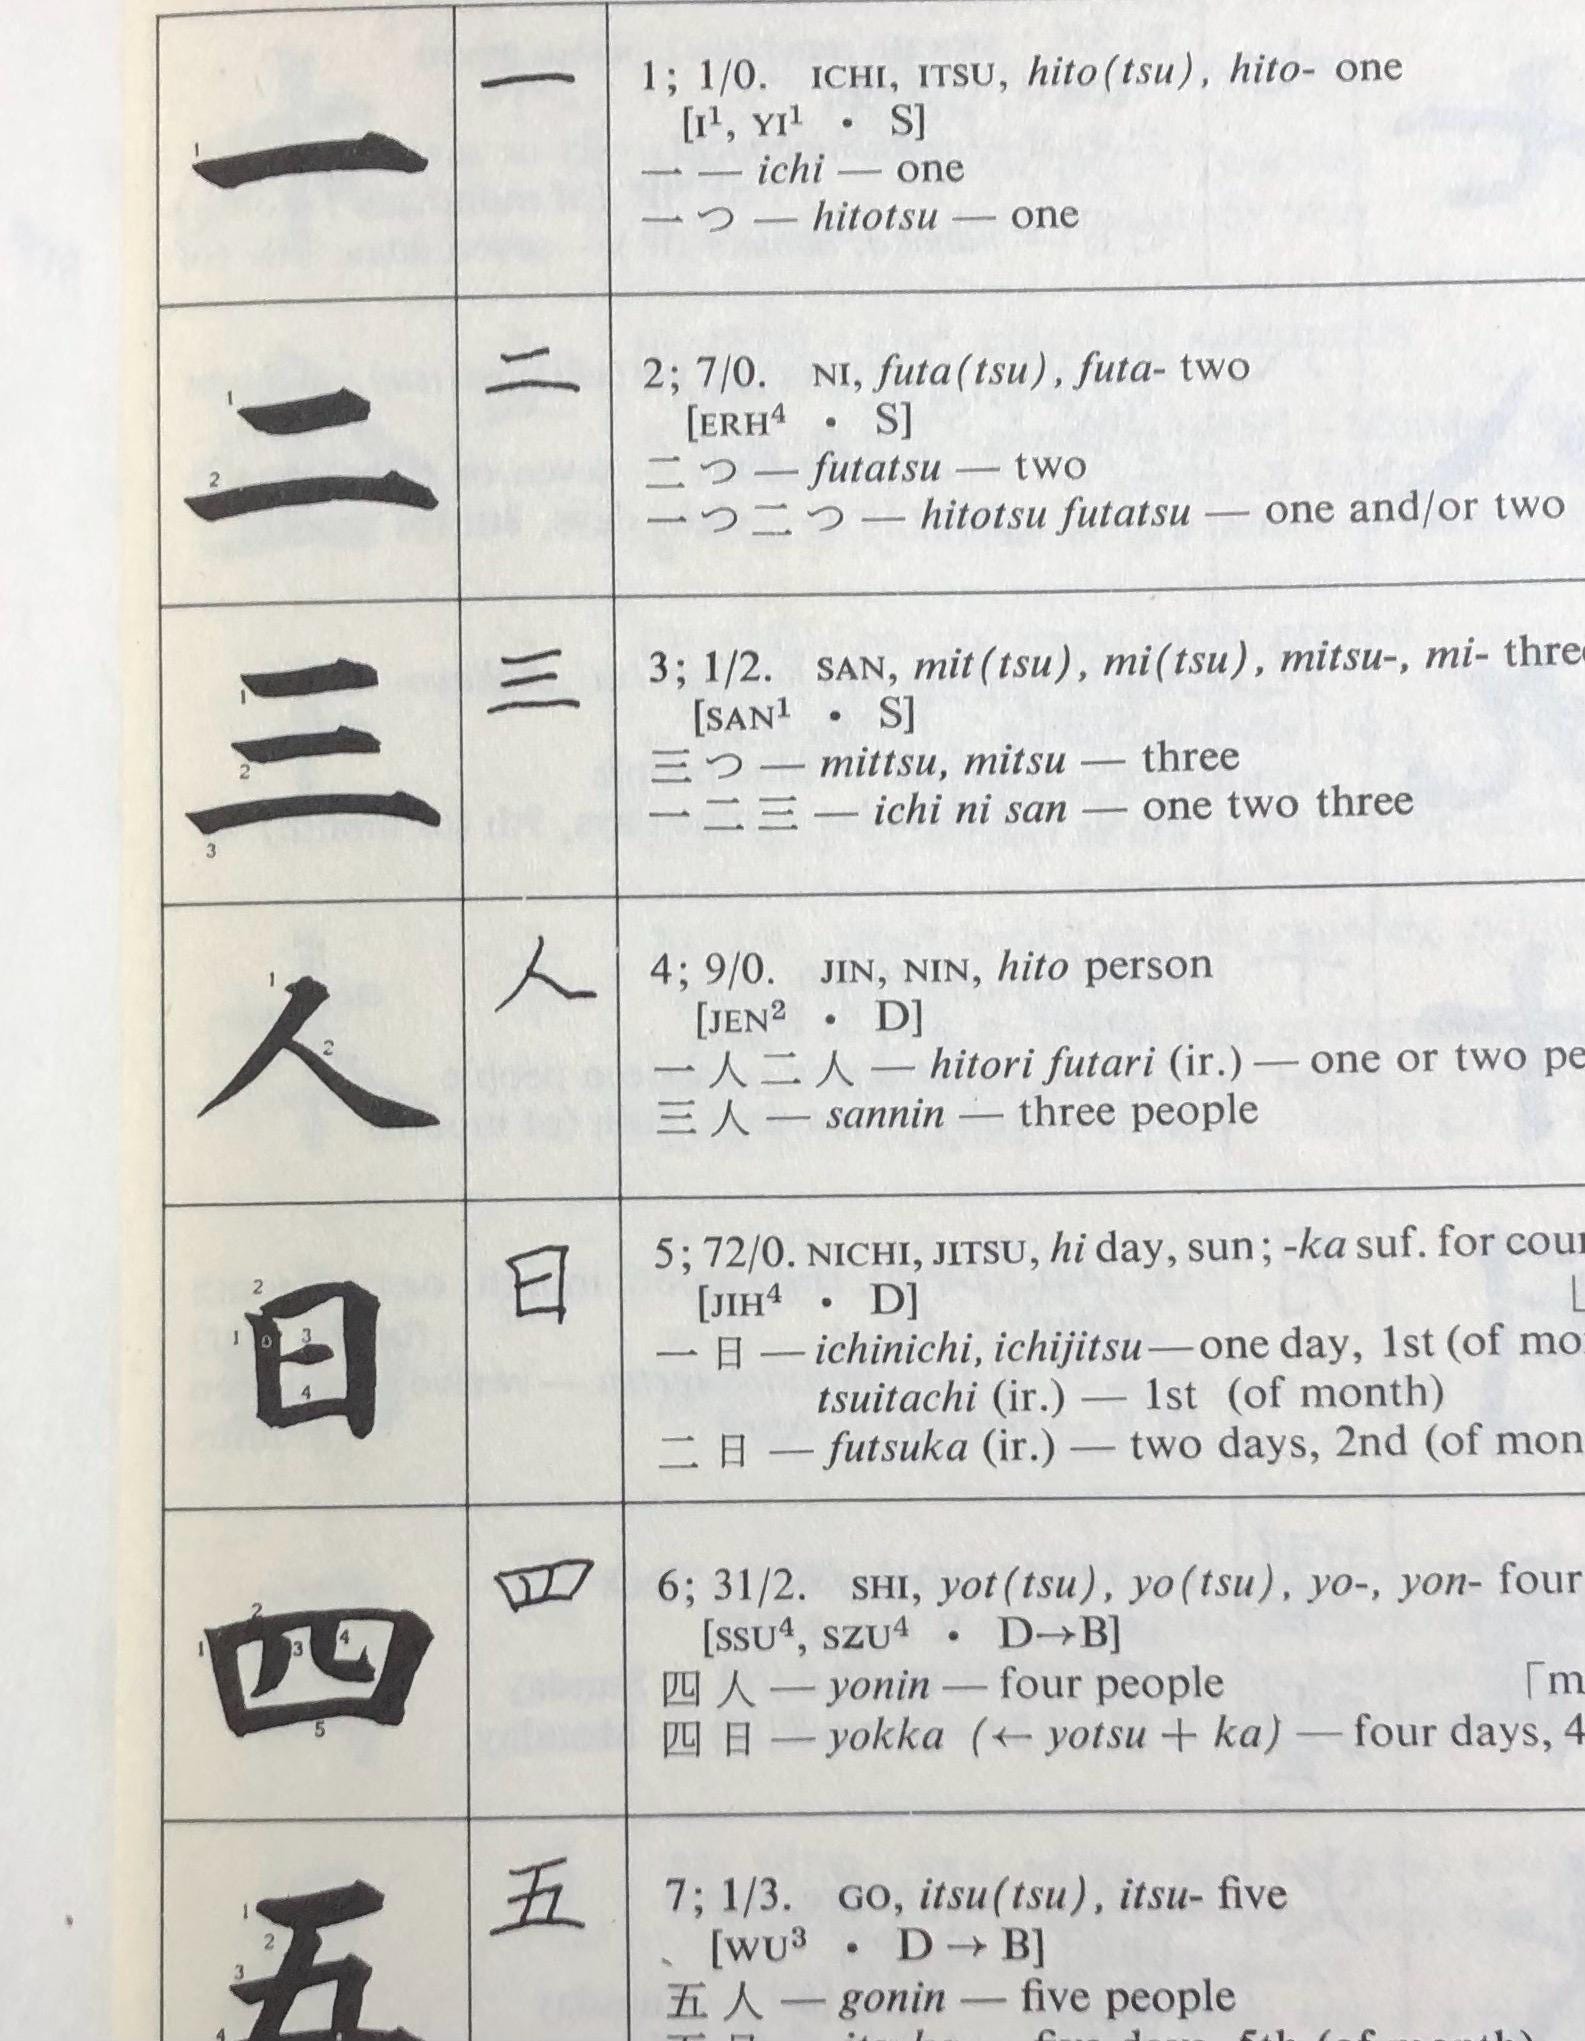 一
1
一
1; 1/0. ICHI, ITSU, hito(tsu), hito- one
[I¹, YI¹ • S]
一 — ichi — one
一つ — hitotsu — one
二
1
2
二
2; 7/0. NI, futa(tsu), futa- two
[ERH⁴ • S]
二つ — futatsu — two
一つ二つ — hitotsu futatsu — one and/or two
三
1
2
3
三
3; 1/2. SAN, mit(tsu), mi(tsu), mitsu-, mi- three
[SAN¹ • S]
三つ — mittsu, mitsu — three
一二三 — ichi ni san — one two three
人
1
2
人
4; 9/0. JIN, NIN, hito person
[JEN² • D]
一人二人 — hitori futari (ir.) — one or two pe
三人 — sannin — three people
日
2
1
3
4
日
5; 72/0. NICHI, JITSU, hi day, sun; -ka suf. for cou
[JIH⁴ • D]
一日 — ichinichi, ichijitsu—one day, 1st (of mo
tsuitachi (ir.) — 1st (of month)
二日 — futsuka (ir.) — two days, 2nd (of mon
四
2
1
3
4
5
四
6; 31/2. SHI, yot(tsu), yo(tsu), yo-, yon- four
[SSU⁴, SZU⁴ • D→B]
四人 — yonin — four people 「m
四日 — yokka (← yotsu + ka) — four days, 4
五
1
2
3
4
五
7; 1/3. GO, itsu(tsu), itsu- five
[WU³ • D → B]
五人 — gonin — five people